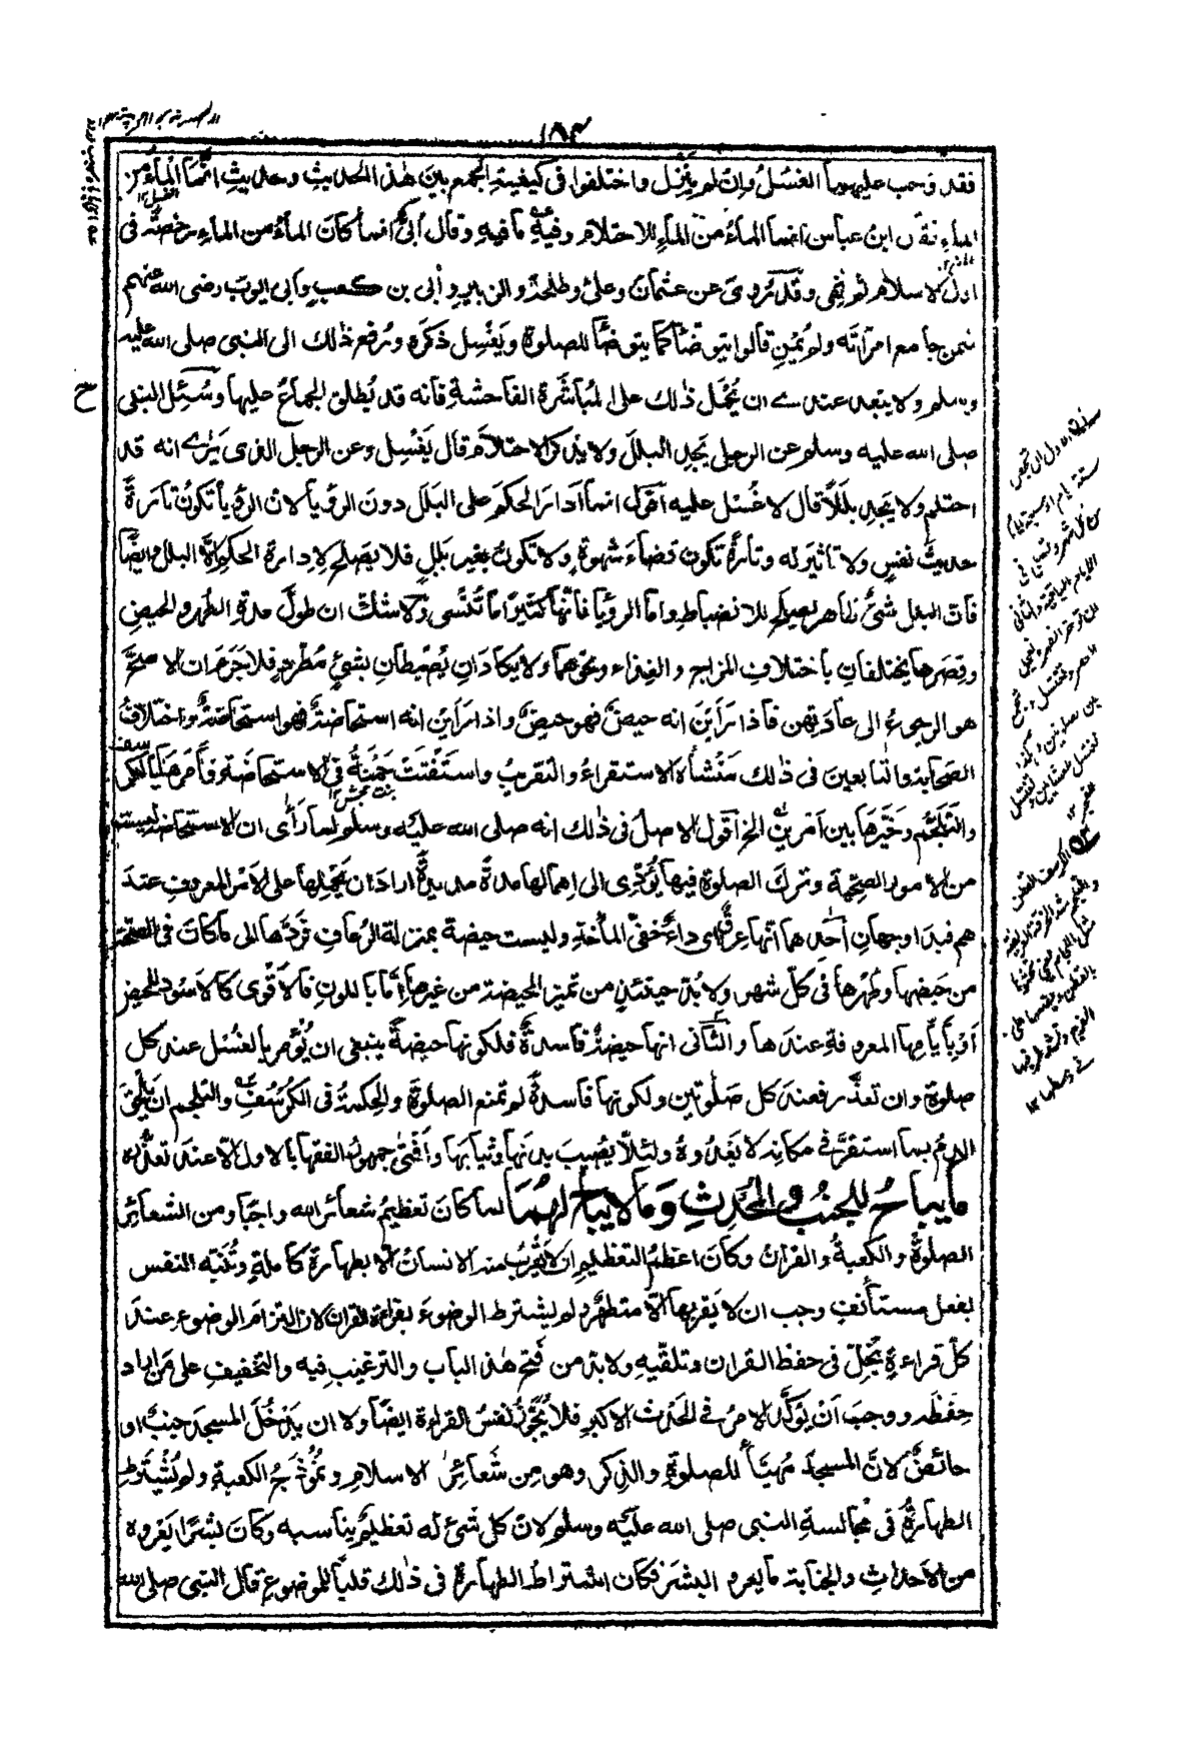 ١٨٣
فقد وجب عليهما الغسلُ وإن لم يُنزل واختلفوا فى كيفيةِ الجمع بين هٰذا الحديثِ وحديثِ انّما الماءُ من
الماءِ فقال ابن عباس انما الماءُ من الماءِ للاحتلام وفيه ما فيه وقال أُبىٌّ انما كان الماءُ من الماءِ رخصةً فى
اول الاسلام ثم نُهِى وقد رُوِىَ عن عثمان وعلىّ وطلحة والزبيرِ وأُبى بن كعبٍ وابى ايوبَ رضى الله عنهم
فمن جامع امرأتَه ولم يُمْنِ قالوا يتوضّأ كما يتوضّأ للصلوة ويَغْسِل ذكرَه ورُفع ذٰلك الى النبى صلى الله عليه
وسلم ولا يبعد عندى ان يُحْمَل ذٰلك على المُباشَرة الفاحشةِ فانه قد يُطلق الجماعُ عليها وسُئِل النبى
صلى الله عليه وسلم عن الرجلِ يَجِد البللَ ولا يذكر الاحتلامَ قال يَغْتسِل وعن الرجلِ الذى يَرٰى انه قد
احتلم ولا يَجِد بللًا قال لا غُسْل عليه أقول انما أدارَ الحكمَ على البلل دون الرؤيا لان الرؤيا تكونُ تارةً
حديثَ نفسٍ ولا تاثيرَ له وتارةً تكون قضاءَ شهوةٍ ولا تكونُ بغير بللٍ فلا يصلح لإدارة الحكم الّا البلل وايضًا
فان البلل شئٌ ظاهر يصلح للانضباطِ واما الرؤيا فانها كثيرًا ما تُنْسٰى ولا شكّ ان طولَ مدةِ الطهرِ والحيضِ
وقِصَرها يختلفانِ باختلافِ المزاجِ والغذاء ونحوهما ولا يكادانِ يُضْبَطانِ بشئٍ مُطّردٍ فلا جَرَمَ ان الاصحَّ
هو الرجوعُ الى عادتِهن فاذا رَأَينَ انه حيضٌ فهو حيضٌ واذا رأَينَ انه استحاضةٌ فهو استحاضةٌ واختلافُ
الصحابة والتابعين فى ذٰلك مَنْشأه الاستقراءُ والتقريبُ واستَفْتَتْ حَمْنةُ فى الاستحاضة فأمرها بالكرسف
والتلجّم وخيّرها بين امرينِ الخ أقول الاصلُ فى ذٰلك انه صلى الله عليه وسلم لما رأى ان الاستحاضة ليست
من الامور الصحّية وتركَ الصلوة فيها يُؤدّى الى إهمالها مدةً مديدةً اراد ان يَحْمِلها على الامر المعروفِ عند
هم فبدا وجهانِ أحدهما انها عِرقٌ اى داءٌ خفىّ المأخذ وليست حيضة بمنزلة الرُعافِ فردّها الى ما كان فى الصحة
من حَيضها وطُهرها فى كلّ شهر ولا بُدّ حينئذٍ من تميز الحيضة من غيرها إمّا باللونِ فالأقوى كالاسود للحيض
أو بأيّامِها المعروفةِ عندها والثانى انها حيضةٌ فاسدةٌ فلكونها حيضةً ينبغى ان يُؤمر بالغسل عند كل
صلوةٍ وان تعذّر فعند كل صلوتين ولكونها فاسدةً لم تمنع الصلوة والحِكمةُ فى الكُرْسُفِ والتلجم ان يَلْحَقَ
الدمُ بما استقرَّ فى مكانه لا يَعْدُوهُ ولئلّا يُصيبَ بدنَها وثيابَها وأفتى جمهورُ الفقهاء بالاول الّا عند تعذُّره
مَا يباحُ للجُنُب والمُحْدِثِ وَمَا لا يباحُ لهُمَا لما كان تعظيمُ شعائرِ الله واجبًا ومن الشعائر
الصلوةُ والكعبةُ والقرانُ وكان اعظمُ التعظيمِ ان لا يَقْرُبَ منه الانسانُ الّا بطهارةٍ كاملةٍ وتُنبّه النفس
بفعل مستأنفٍ وجب ان لا يقربها الّا متطهّرٌ ولم يشترط الوضوءَ بقراءة القران لان التزامَ الوضوءِ عند
كلّ قراءةٍ يُخِلّ فى حفظ القران وتلقّيه ولا بدّ من فتح هٰذا الباب والترغيب فيه والتخفيفِ على مَن اراد
حِفْظَه ووجبَ ان يُؤكَّد الامرُ فى الحَدَث الاكبرِ فلا يُجَوَّز نفسُ القراءةِ ايضًا ولا ان يَدْخُلَ المسجدَ جنبٌ او
حائضٌ لانّ المسجدَ مُهيّأٌ للصلوةِ والذِكر وهو من شَعائرِ الاسلامِ ونُمُوذَجُ الكعبة ولم يُشْتَرط
الطهارةُ فى مجالسةِ النبى صلى الله عليه وسلم لان كل شئ له تعظيمٌ يناسبه وكان بشرًا يَعْروه
من الاَحداثِ والجنابة ما يعرو البشرَ فكان اشتراطُ الطهارة فى ذٰلك قلبًا للموضوع قال النبى صلى الله